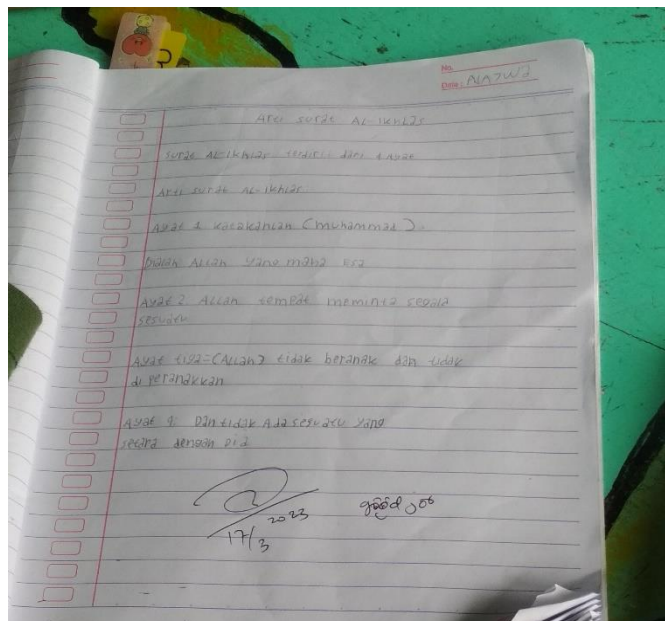 No.
Date: NAJWA
Arti surat AL-IKhLas
surat AL-IKhLas terdiri dari 4 Ayat
Arti surat AL-IKhLas
Ayat 1 katakanlah (muhammad).
Dialah ALLah yang maha esa
Ayat 2 ALLah tempat meminta segala
sesuatu
Ayat tiga=(ALLah) tidak beranak dan tidak
di peranakkan
Ayat 4. Dan tidak Ada sesuatu yang
setara dengan Dia
17/3 2023
good job